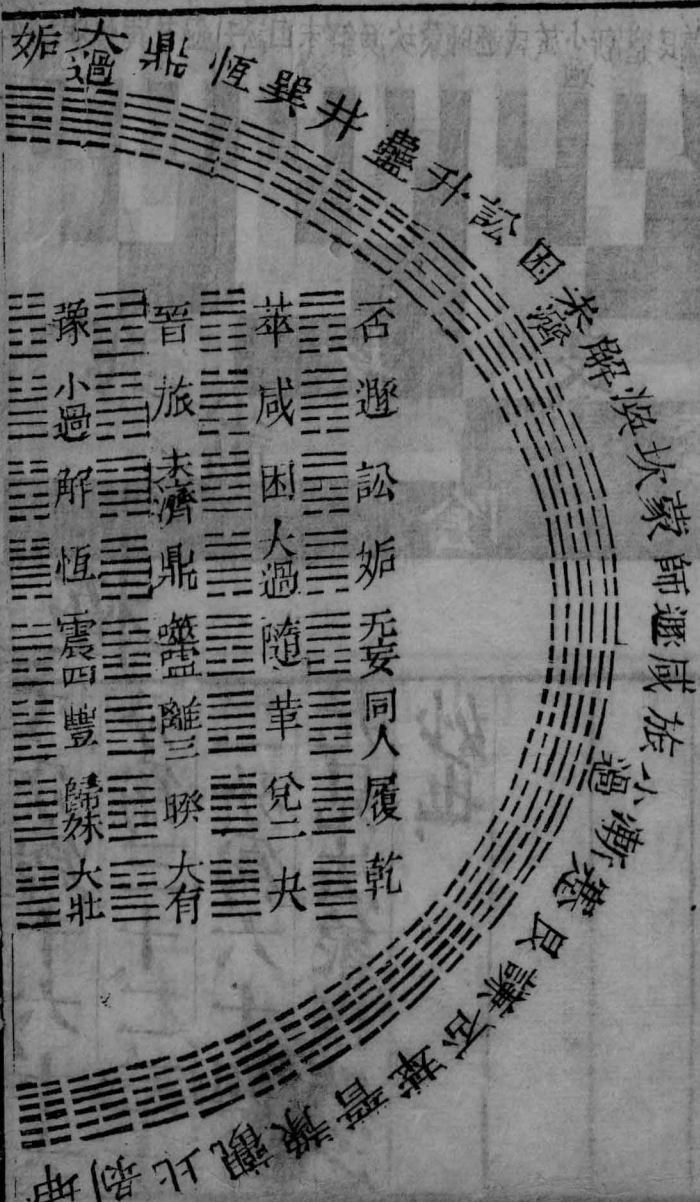 姤大過鼎恆巽井蠱升訟困未濟解渙坎蒙師遯咸旅小過漸蹇艮謙否萃晉豫觀比剝坤
否遯訟姤无妄同人履乾
萃咸困大過隨革兌二夬
晉旅未濟鼎噬嗑離三睽大有
豫小過解恆震四豐歸妹大壯